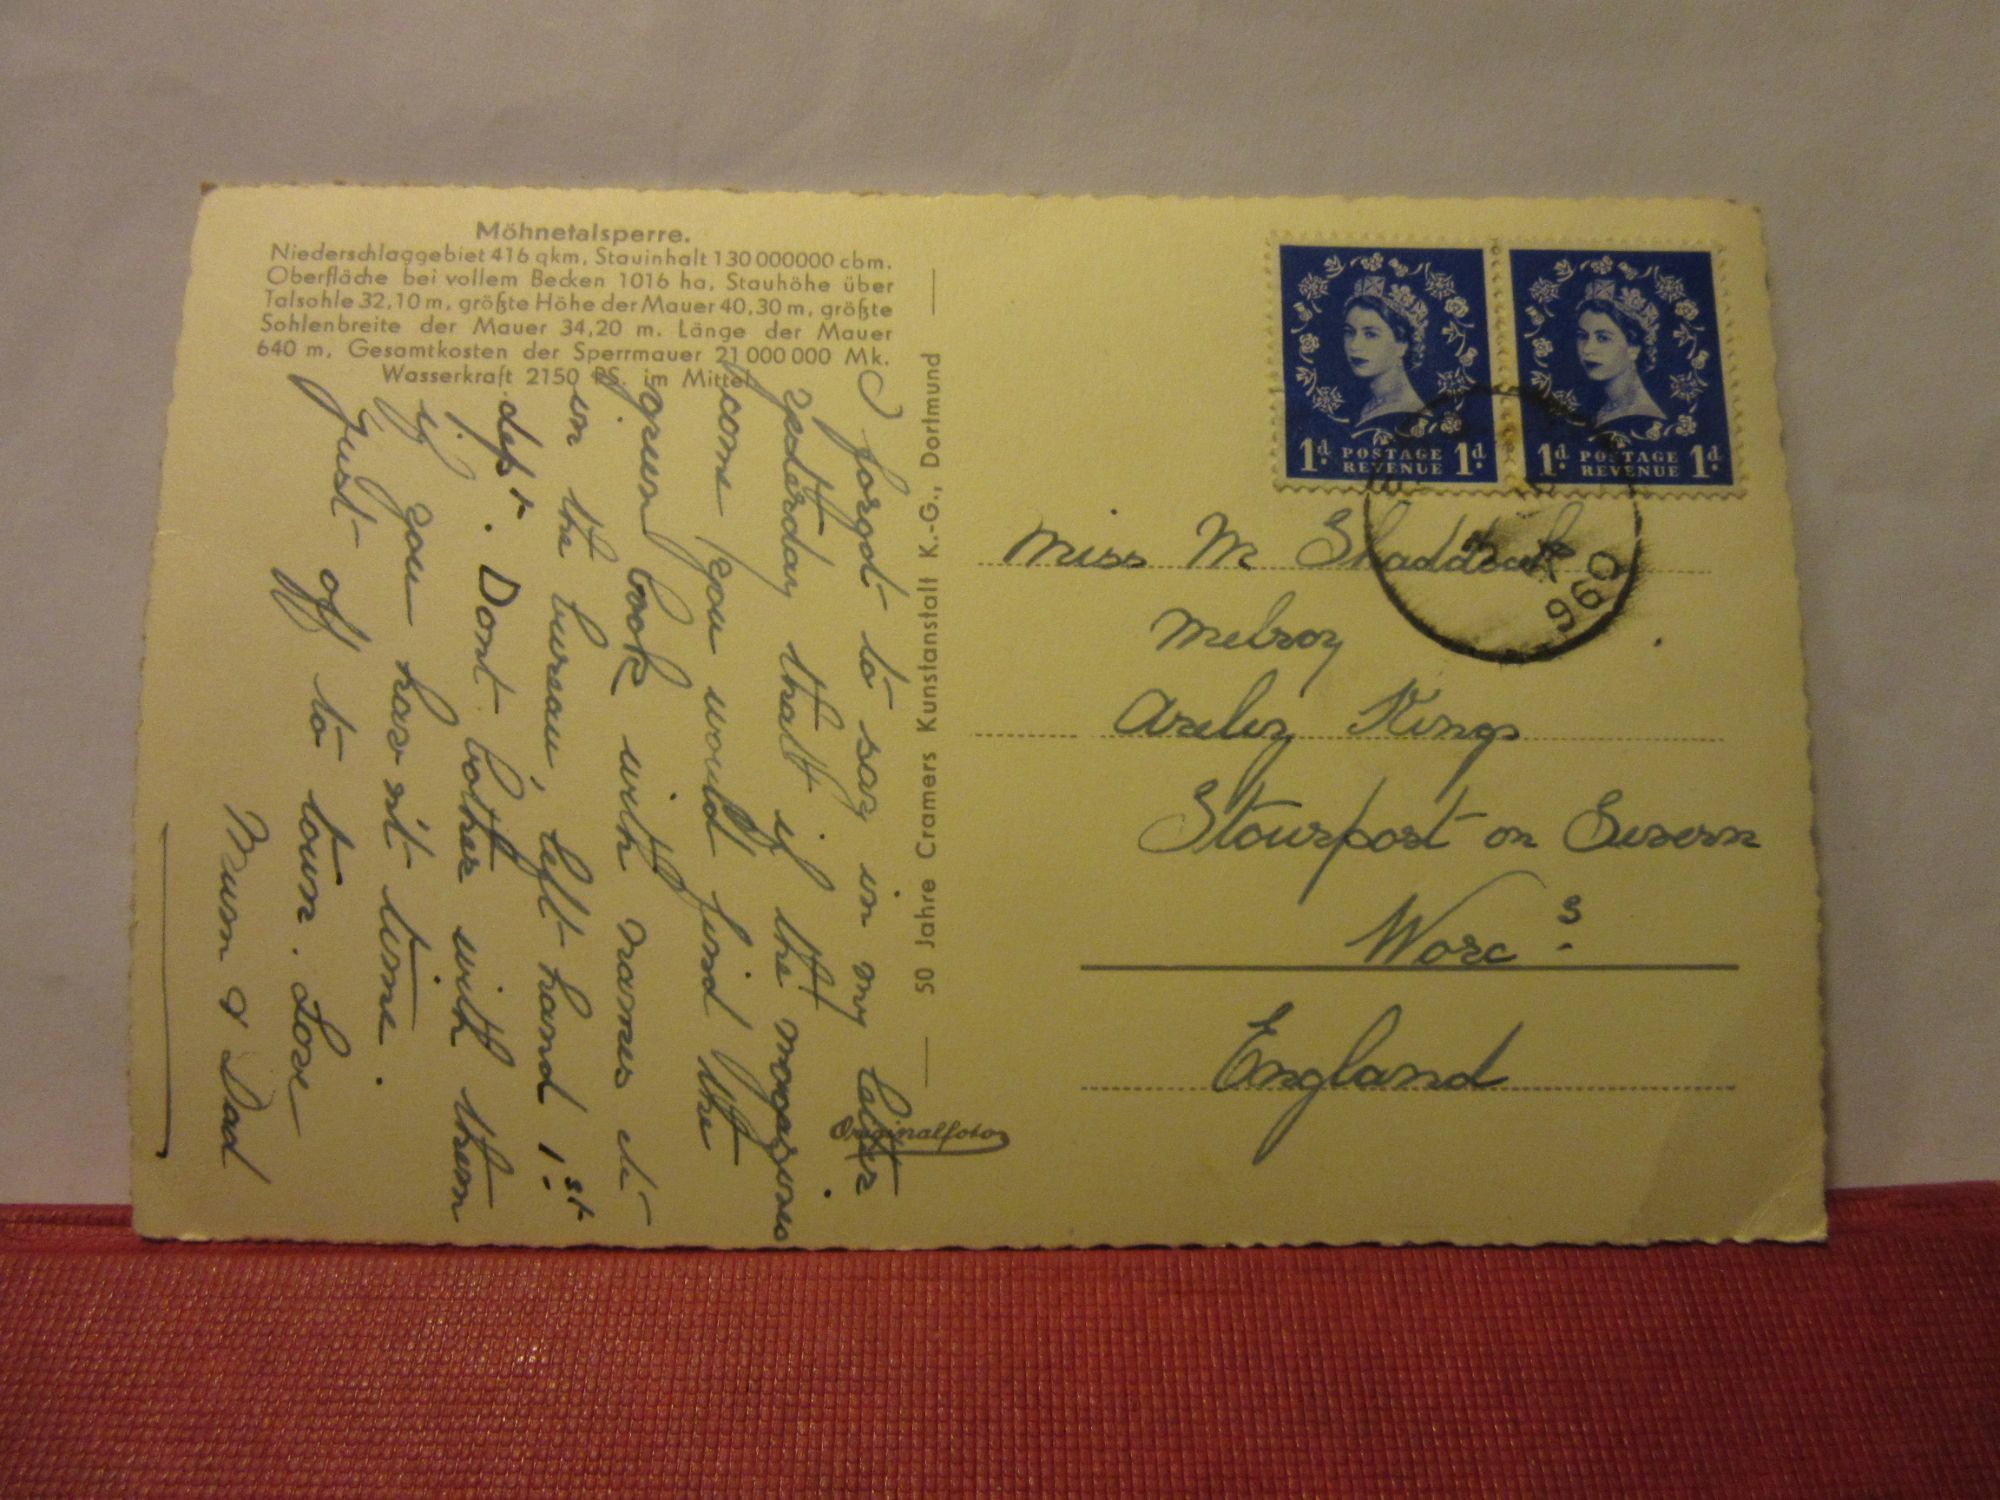 Möhnetalsperre.
Niederschlaggebiet 416 qkm, Stauinhalt 130 000000 cbm.
Oberfläche bei vollem Becken 1016 ha, Stauhöhe über
Talsohle 32,10 m, größte Höhe der Mauer 40,30 m, größte
Sohlenbreite der Mauer 34,20 m. Länge der Mauer
640 m, Gesamtkosten der Sperrmauer 21 000 000 Mk.
Wasserkraft 2150 PS. im Mittel
I forgot to say in my letter
yesterday that if the magazines
come you would find the
green book with names etc
in the bureau, left hand 1st
dept. Dont bother with them
if you hav'nt time.
Just off to town. Love
Mum & Dad
50 Jahre Cramers Kunstanstalt K.-G., Dortmund
Originalfoto
1d. POSTAGE REVENUE 1d.
1d. POSTAGE REVENUE 1d.
960
Miss M Shaddock
Melroy
Areley Kings
Stourport on Severn
Worcs
England